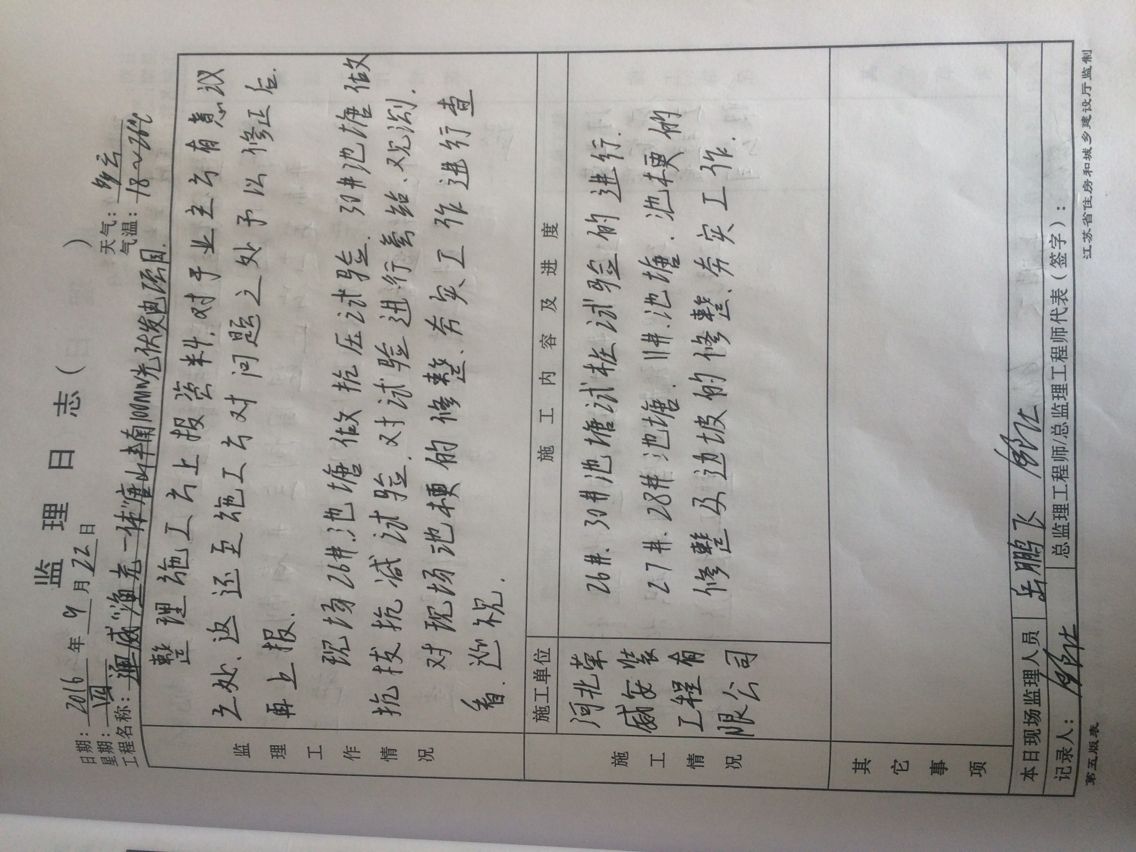 监理日志（ ）
日期：2016年9月22日 天气：多云
星期：四 气温：18~26℃
工程名称："渔光一体"唐山丰南100MW光伏发电项目.
监理工作情况
整理施工方上报资料,对于业主方有意议
之处、返还至施工方对问题之处予以修正后.
再上报.
现场26#池塘做抗压试验. 30#池塘做
抗拔抗减试验.对试验进行素结、观测.
对现场池梗的修整、夯实工作进行查
看.巡视.
施工情况
施工单位 施工内容及进度
河北荣
威安装
工程有
限公司
26#. 30#池塘试桩试验的进行.
27#. 28#池塘. 11#.池塘. 池梗的
修整及边坡的修整、夯实工作.
其它事项
本日现场监理人员 岳鹏飞
记录人： 总监理工程师/总监理工程师代表（签字）：
第五版表 江苏省住房和城乡建设厅监制